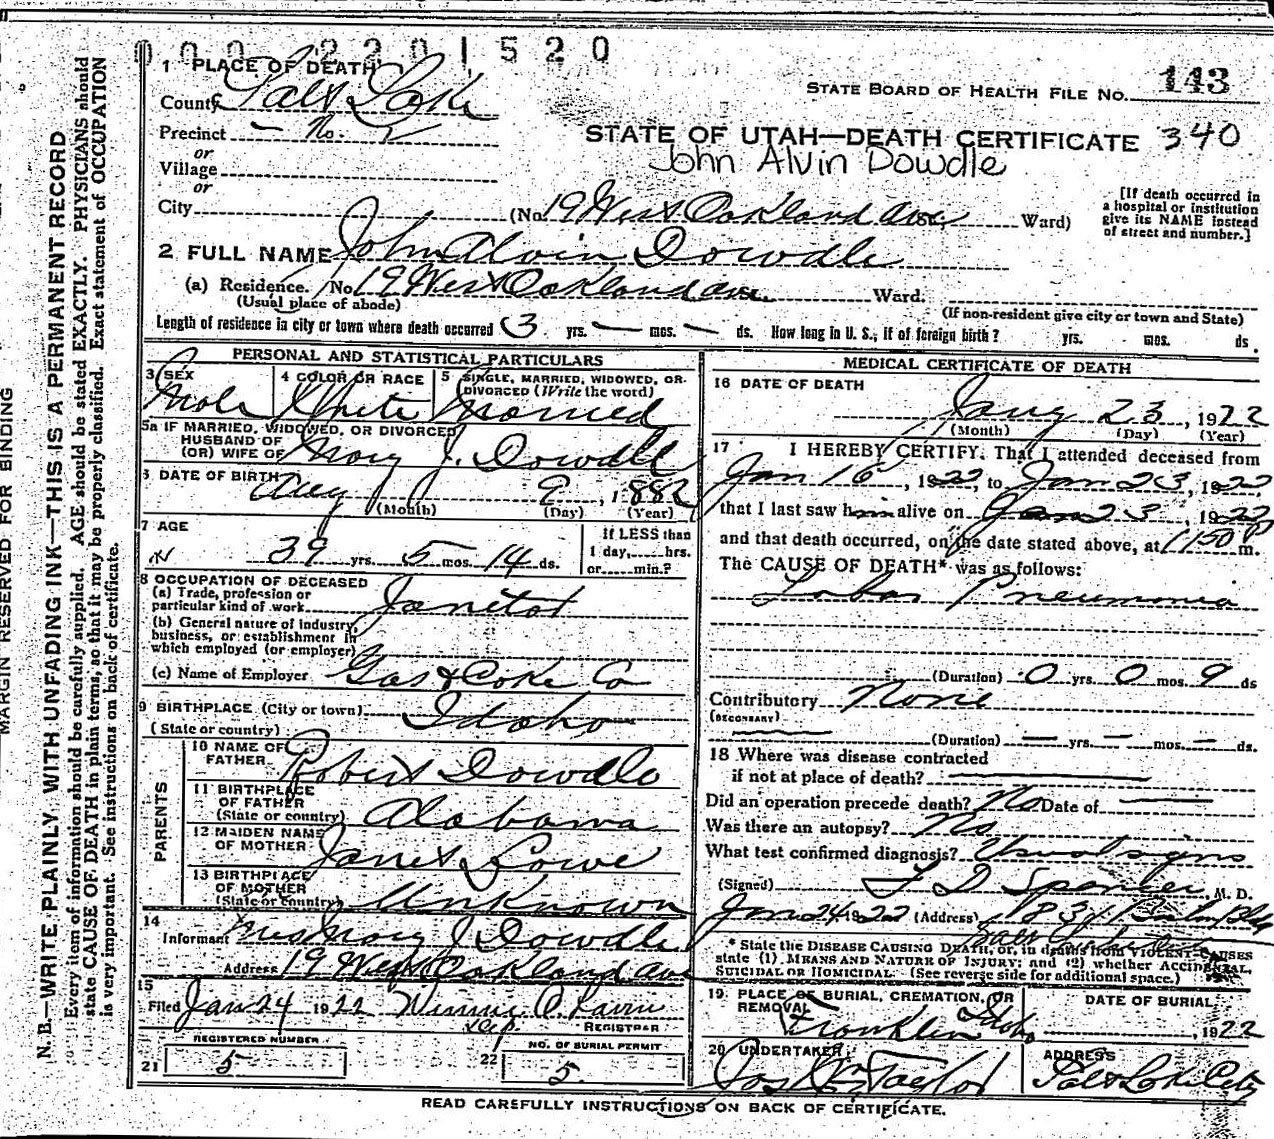 0002201520
1 PLACE OF DEATH
County Salt Lake
STATE BOARD OF HEALTH FILE NO. 143
Precinct — No. 2
STATE OF UTAH—DEATH CERTIFICATE 340
or
Village
John Alvin Dowdle
or
City (No 19 West Oakland Ave Ward)
[If death occurred in
a hospital or institution
give its NAME instead
of street and number.]
2 FULL NAME John Alvin Dowdle
(a) Residence. No 19 West Oakland Ave. Ward.
(Usual place of abode) (If non-resident give city or town and State)
Length of residence in city or town where death occurred 3 yrs. — mos. — ds. How long in U. S., if of foreign birth? yrs. mos. ds.
PERSONAL AND STATISTICAL PARTICULARS
3 SEX 4 COLOR OR RACE 5 SINGLE, MARRIED, WIDOWED, OR
DIVORCED (Write the word)
Male White Married
5a IF MARRIED, WIDOWED, OR DIVORCED
HUSBAND OF
(OR) WIFE OF Mary J. Dowdle
6 DATE OF BIRTH Aug 9, 1882
(Month) (Day) (Year)
7 AGE If LESS than
39 yrs. 5 mos. 14 ds. 1 day, hrs.
or min.?
8 OCCUPATION OF DECEASED
(a) Trade, profession or
particular kind of work Janitor
(b) General nature of industry,
business, or establishment in
which employed (or employer)
(c) Name of Employer Gas & Coke Co
9 BIRTHPLACE (City or town) Idaho
(State or country)
PARENTS
10 NAME OF
FATHER Robert Dowdle
11 BIRTHPLACE
OF FATHER
(State or country) Alabama
12 MAIDEN NAME
OF MOTHER Janet Lowe
13 BIRTHPLACE
OF MOTHER
(State or country) Unknown
14
Informant Mrs Mary J Dowdle
Address 19 West Oakland Ave
15
Filed Jan 24 1922 Winnie
REGISTRAR
REGISTERED NUMBER NO. OF BURIAL PERMIT
21 5 22 5
MEDICAL CERTIFICATE OF DEATH
16 DATE OF DEATH
Jany 23, 1922
(Month) (Day) (Year)
17 I HEREBY CERTIFY. That I attended deceased from
Jan 16, 1922, to Jan 23, 1922
that I last saw him alive on Jan 23, 1922
and that death occurred, on the date stated above, at 1150 P m.
The CAUSE OF DEATH* was as follows:
Lobar Pneumonia
(Duration) 0 yrs. 0 mos. 9 ds
Contributory None
(SECONDARY)
(Duration) — yrs. — mos. — ds.
18 Where was disease contracted
if not at place of death?
Did an operation precede death? No Date of
Was there an autopsy? No
What test confirmed diagnosis? Usual signs
(Signed) M. D.
Jan 24 1922 (Address)
* State the DISEASE CAUSING DEATH, or, in deaths from VIOLENT CAUSES
state (1) MEANS AND NATURE OF INJURY; and (2) whether ACCIDENTAL,
SUICIDAL OR HOMICIDAL. (See reverse side for additional space.)
19 PLACE OF BURIAL, CREMATION, OR
REMOVAL
Franklin Idaho
DATE OF BURIAL
, 1922
20 UNDERTAKER
Jos Wm Taylor
ADDRESS
Salt Lake City
READ CAREFULLY INSTRUCTIONS ON BACK OF CERTIFICATE.
MARGIN RESERVED FOR BINDING
N. B.—WRITE PLAINLY, WITH UNFADING INK—THIS IS A PERMANENT RECORD
Every item of information should be carefully supplied. AGE should be stated EXACTLY. PHYSICIANS should
state CAUSE OF DEATH in plain terms, so that it may be properly classified. Exact statement of OCCUPATION
is very important. See instructions on back of certificate.